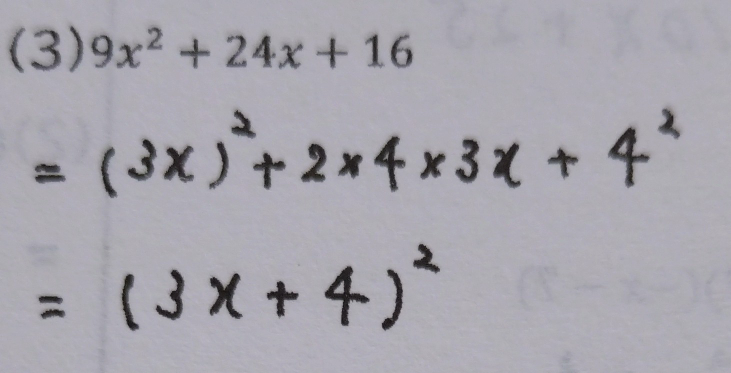 (3)9x² + 24x + 16
= (3x)² + 2×4×3x + 4²
= (3x + 4)²